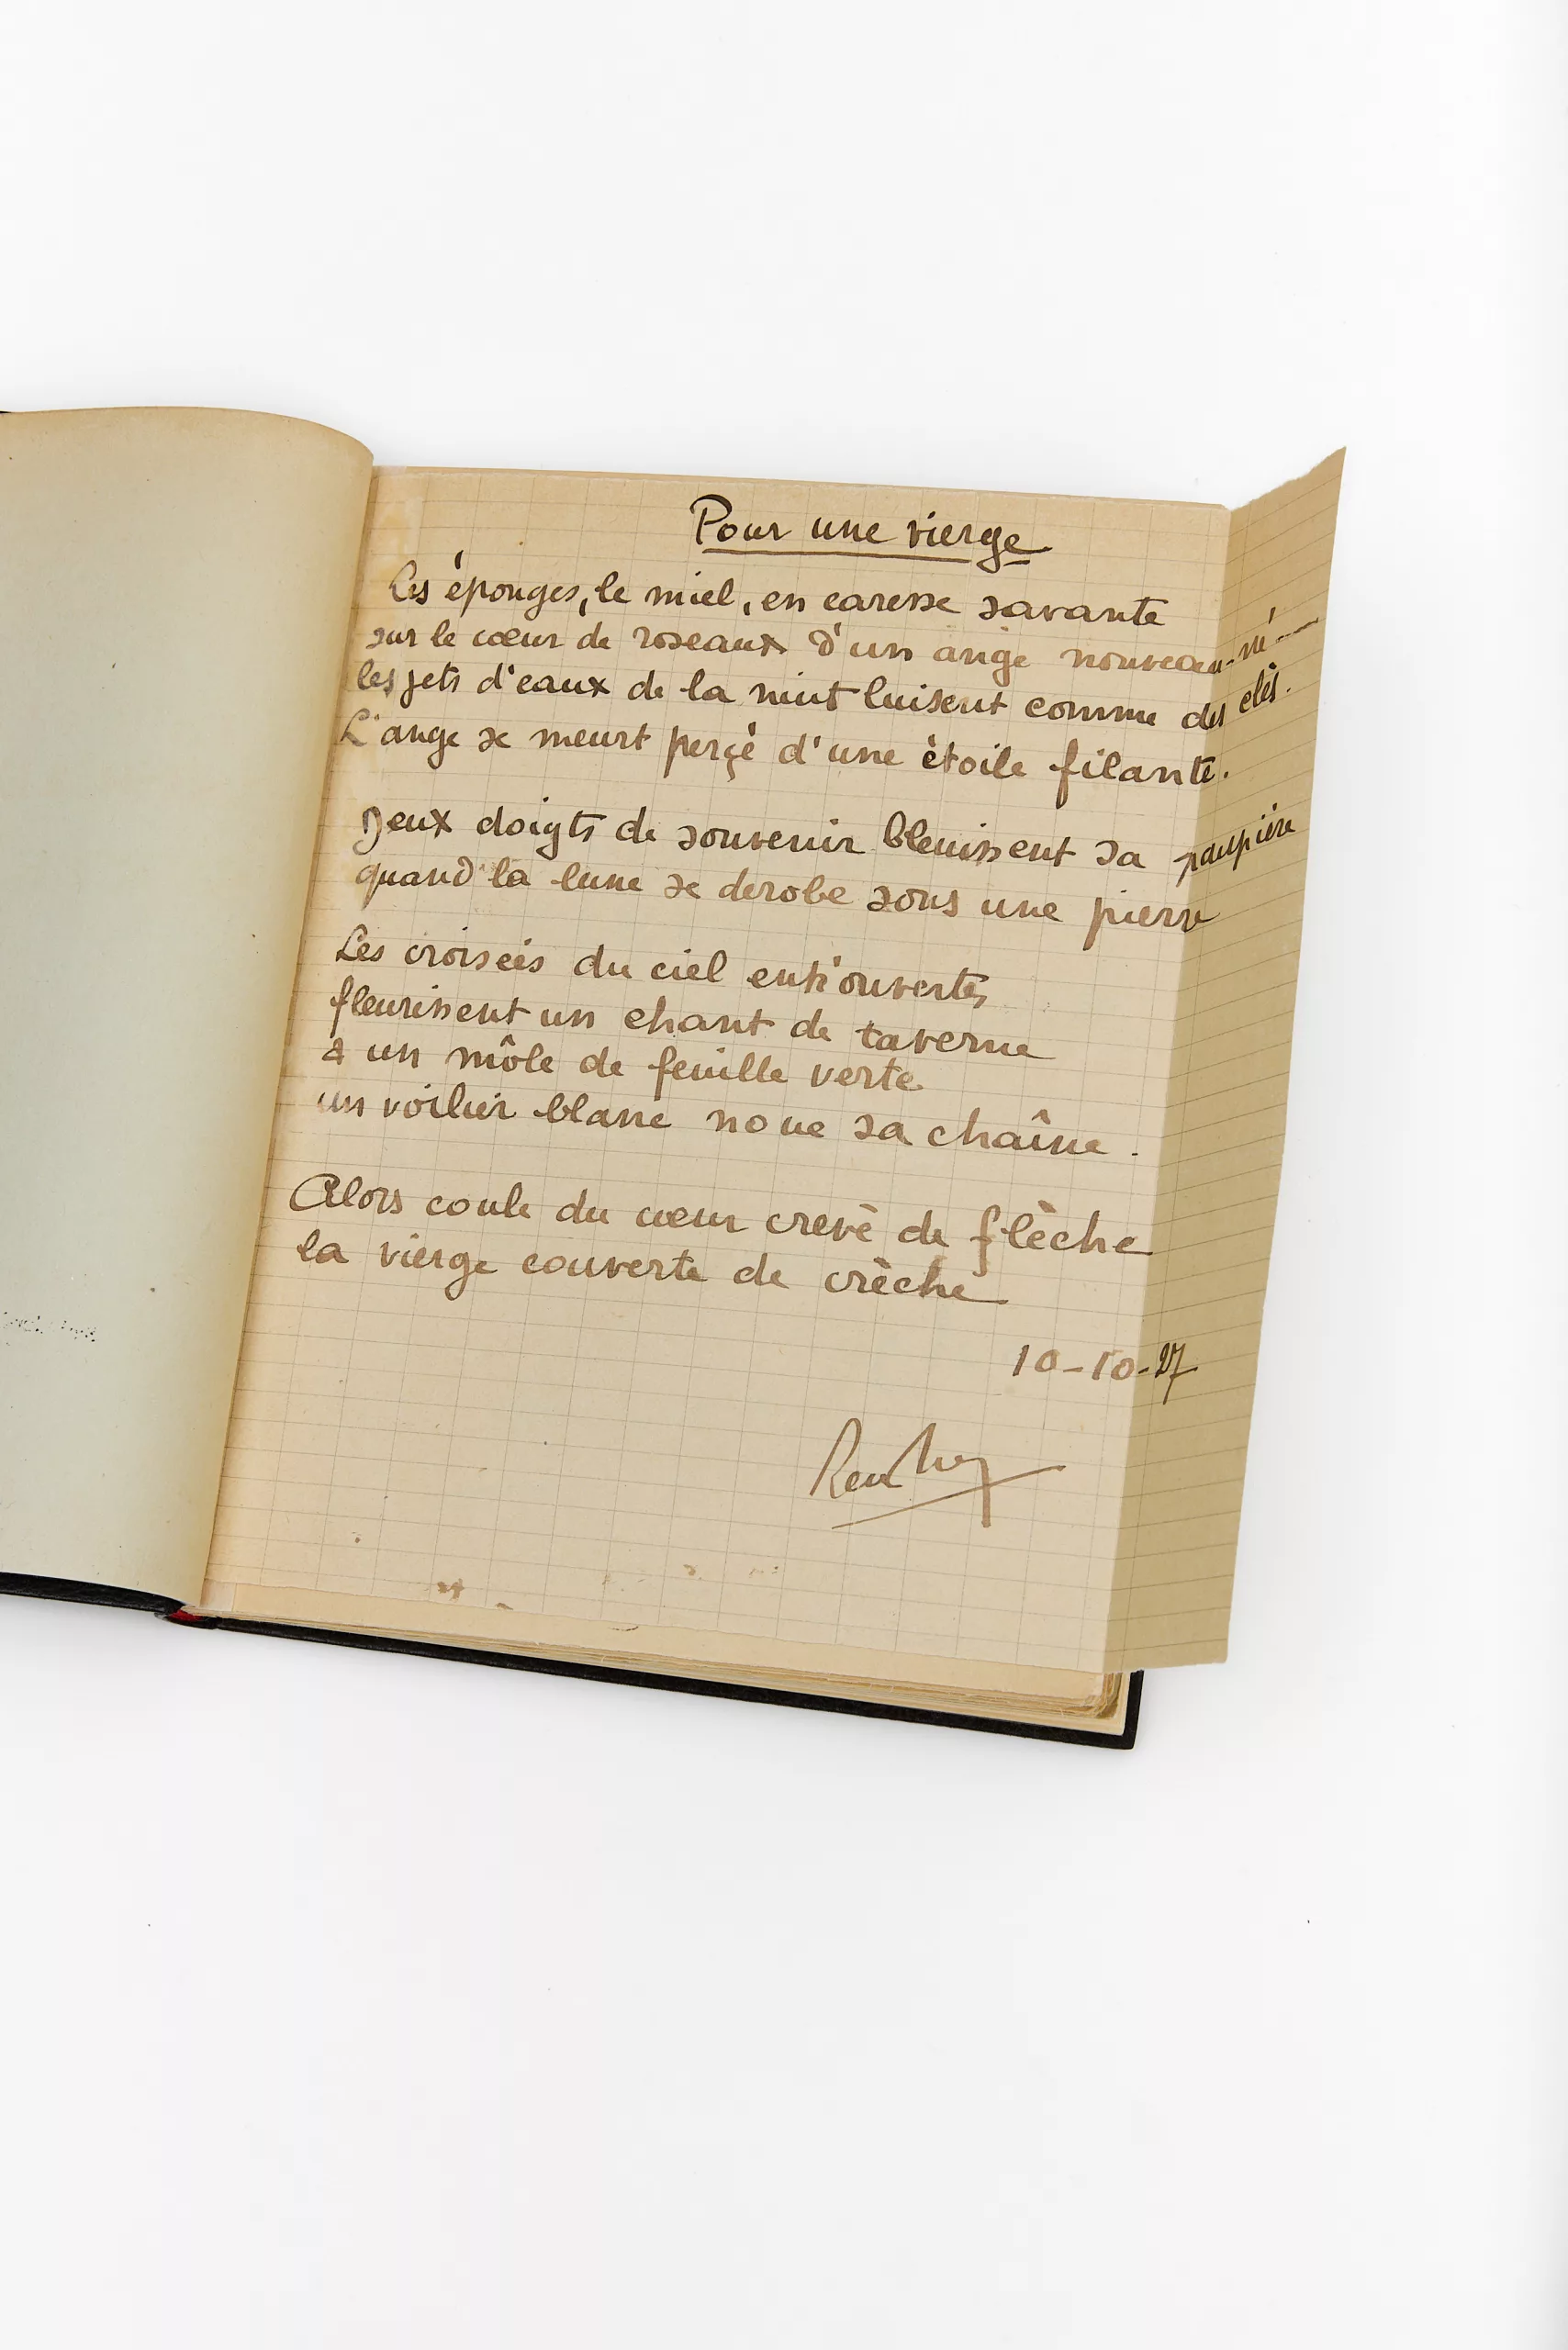 Pour une vierge
Les éponges, le miel, en caresse savante
sur le cœur de roseaux d'un ange nouveau-né —
les jets d'eaux de la nuit luisent comme des clés.
L'ange se meurt perçé d'une étoile filante.
Deux doigts de souvenir bleuissent sa paupière
quand la lune se derobe sous une pierre
Les croisées du ciel entr'ouvertes
fleurissent un chant de taverne
à un môle de feuille verte
un voilier blanc noue sa chaîne.
Alors coule du cœur crevé de flèche
la vierge couverte de crèche
10-10-27